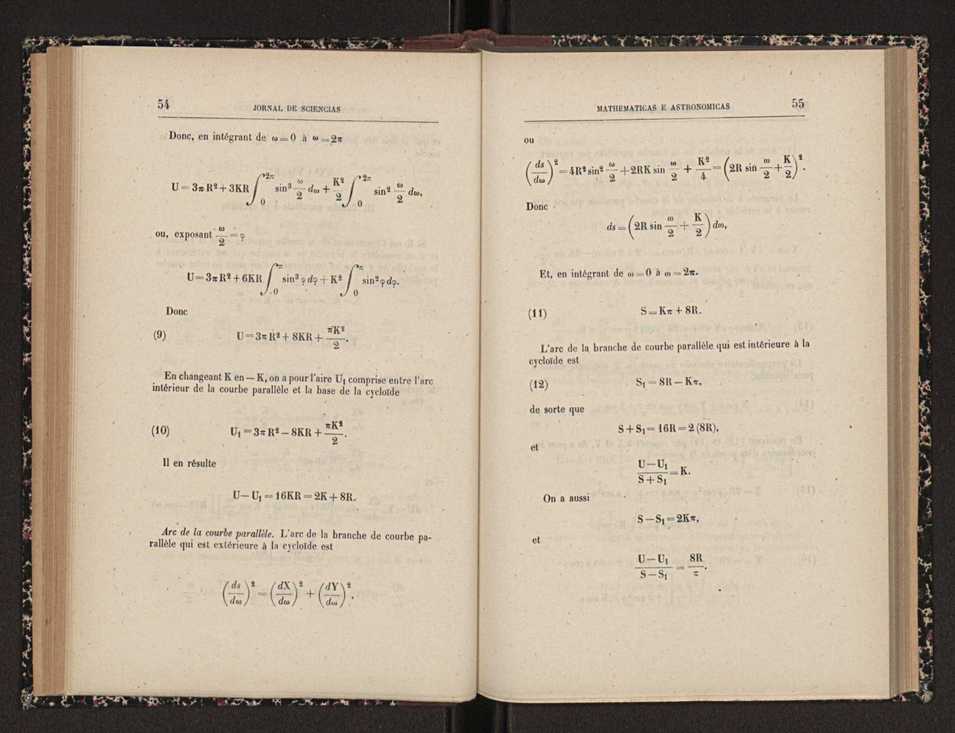 54
JORNAL DE SCIENCIAS
Donc, en intégrant de ω = 0 à ω = 2π
U = 3πR² + 3KR ∫₀²π sin³ ω/2 dω + K²/2 ∫₀²π sin² ω/2 dω,
ou, exposant ω/2 = φ
U = 3πR² + 6KR ∫₀π sin³ φ dφ + K² ∫₀π sin² φ dφ.
Donc
(9) U = 3πR² + 8KR + πK²/2.
En changeant K en — K, on a pour l'aire U₁ comprise entre l'arc
intérieur de la courbe parallèle et la base de la cycloïde
(10) U₁ = 3πR² — 8KR + πK²/2.
Il en résulte
U — U₁ = 16KR = 2K + 8R.
Arc de la courbe parallèle. L'arc de la branche de courbe pa-
rallèle qui est extérieure à la cycloïde est
(ds/dω)² = (dX/dω)² + (dY/dω)².
MATHEMATICAS E ASTRONOMICAS
55
ou
(ds/dω)² = 4R² sin² ω/2 + 2RK sin ω/2 + K²/4 = (2R sin ω/2 + K/2)².
Donc
ds = (2R sin ω/2 + K/2) dω,
Et, en intégrant de ω = 0 à ω = 2π.
(11) S = Kπ + 8R.
L'arc de la branche de courbe parallèle qui est intérieure à la
cycloïde est
(12) S₁ = 8R — Kπ,
de sorte que
S + S₁ = 16R = 2 (8R),
et
U — U₁ / S + S₁ = K.
On a aussi
S — S₁ = 2Kπ,
et
U — U₁ / S — S₁ = 8R/π.